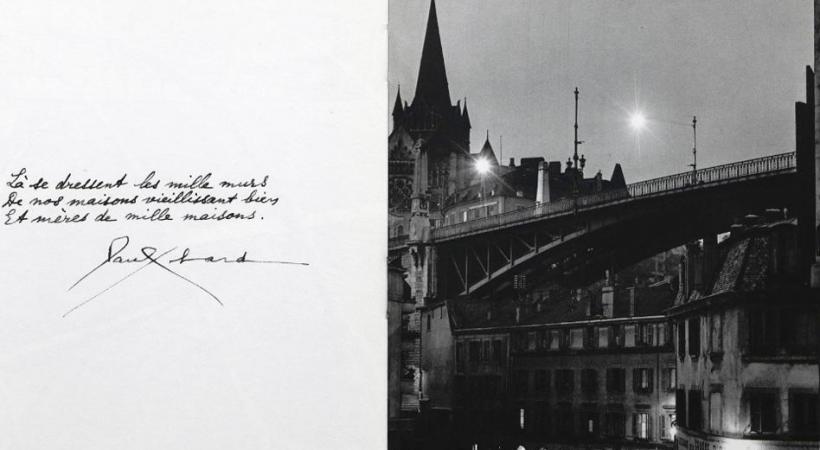 Là se dressent les mille murs
De nos maisons vieillissant bien
Et mères de mille maisons.
Paul Eluard